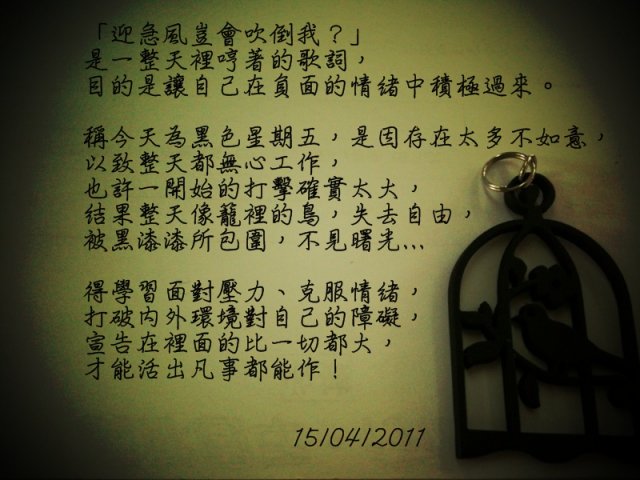 「迎急風豈會吹倒我？」
是一整天裡哼著的歌詞，
目的是讓自己在負面的情緒中積極過來。
稱今天為黑色星期五，是因存在太多不如意，
以致整天都無心工作，
也許一開始的打擊確實太大，
結果整天像籠裡的鳥，失去自由，
被黑漆漆所包圍，不見曙光...
得學習面對壓力、克服情緒，
打破內外環境對自己的障礙，
宣告在裡面的比一切都大，
才能活出凡事都能作！
15/04/2011